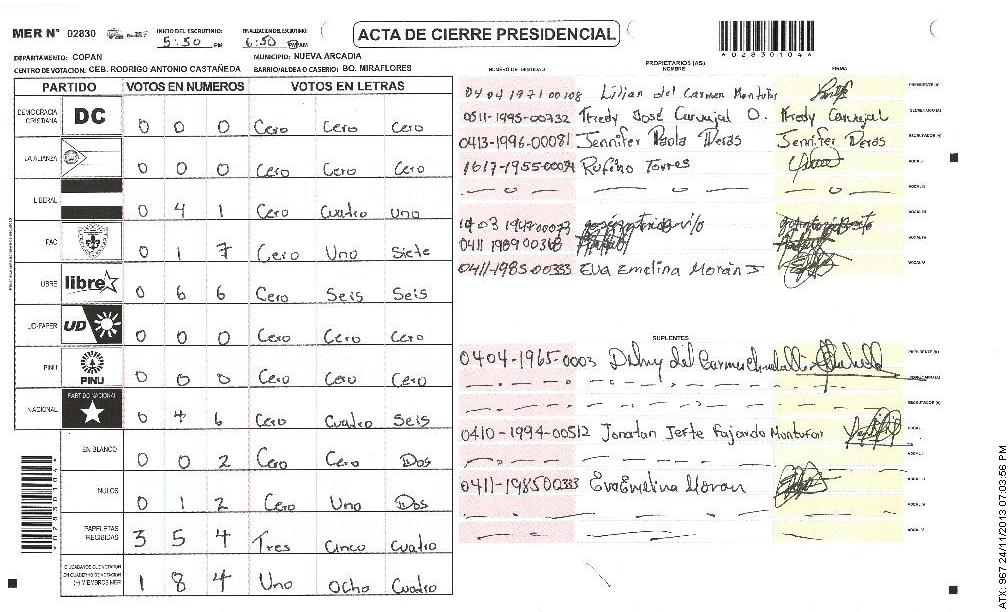 MER N° 02830 INICIO DEL ESCRUTINIO: 5:50 PM FINALIZACION DEL ESCRUTINIO: 6:50 PM ACTA DE CIERRE PRESIDENCIAL 028301041
DEPARTAMENTO: COPAN MUNICIPIO: NUEVA ARCADIA
CENTRO DE VOTACION: CEB. RODRIGO ANTONIO CASTAÑEDA BARRIO/ALDEA O CASERIO: BO. MIRAFLORES
PARTIDO VOTOS EN NUMEROS VOTOS EN LETRAS
DEMOCRACIA CRISTIANA DC 0 0 0 Cero Cero Cero
LA ALIANZA 0 0 0 Cero Cero Cero
LIBERAL 0 4 1 Cero Cuatro Uno
PAC 0 1 7 Cero Uno Siete
LIBRE libre 0 6 6 Cero Seis Seis
UD-FAPER UD 0 0 0 Cero Cero Cero
PINU PINU 0 0 0 Cero Cero Cero
NACIONAL PARTIDO NACIONAL 0 4 6 Cero Cuatro Seis
EN BLANCO 0 0 2 Cero Cero Dos
NULOS 0 1 2 Cero Uno Dos
PAPELETAS RECIBIDAS 3 5 4 Tres Cinco Cuatro
CIUDADANOS QUE VOTARON
EN CUADERNO DE VOTACION
(+) MIEMBROS MER 1 8 4 Uno Ocho Cuatro
PROPIETARIOS (AS)
NUMERO DE IDENTIDAD NOMBRE FIRMA
0404 1971 00108 Lilian del Carmen Montufar PRESIDENTE (A)
0511-1995-00732 Fredy José Carvajal O. Fredy Carvajal SECRETARIO (A)
0413-1996-00081 Jennifer Paola Deras Jennifer Deras ESCRUTADOR (A)
1617-1955-00094 Rufino Torres VOCAL I
VOCAL II
VOCAL III
0411 1989 00368 VOCAL IV
0411-1985-00333 Eva Emelina Morán VOCAL V
SUPLENTES
0404-1965-0003 del Carmen PRESIDENTE (A)
SECRETARIO (A)
ESCRUTADOR (A)
0410-1994-00512 Jonatan Jefte Fajardo Montufar VOCAL I
VOCAL II
0411-1985 00333 Eva Emelina Moran VOCAL III
VOCAL IV
VOCAL V
ATX: 967 24/11/2013 07:03:56 PM